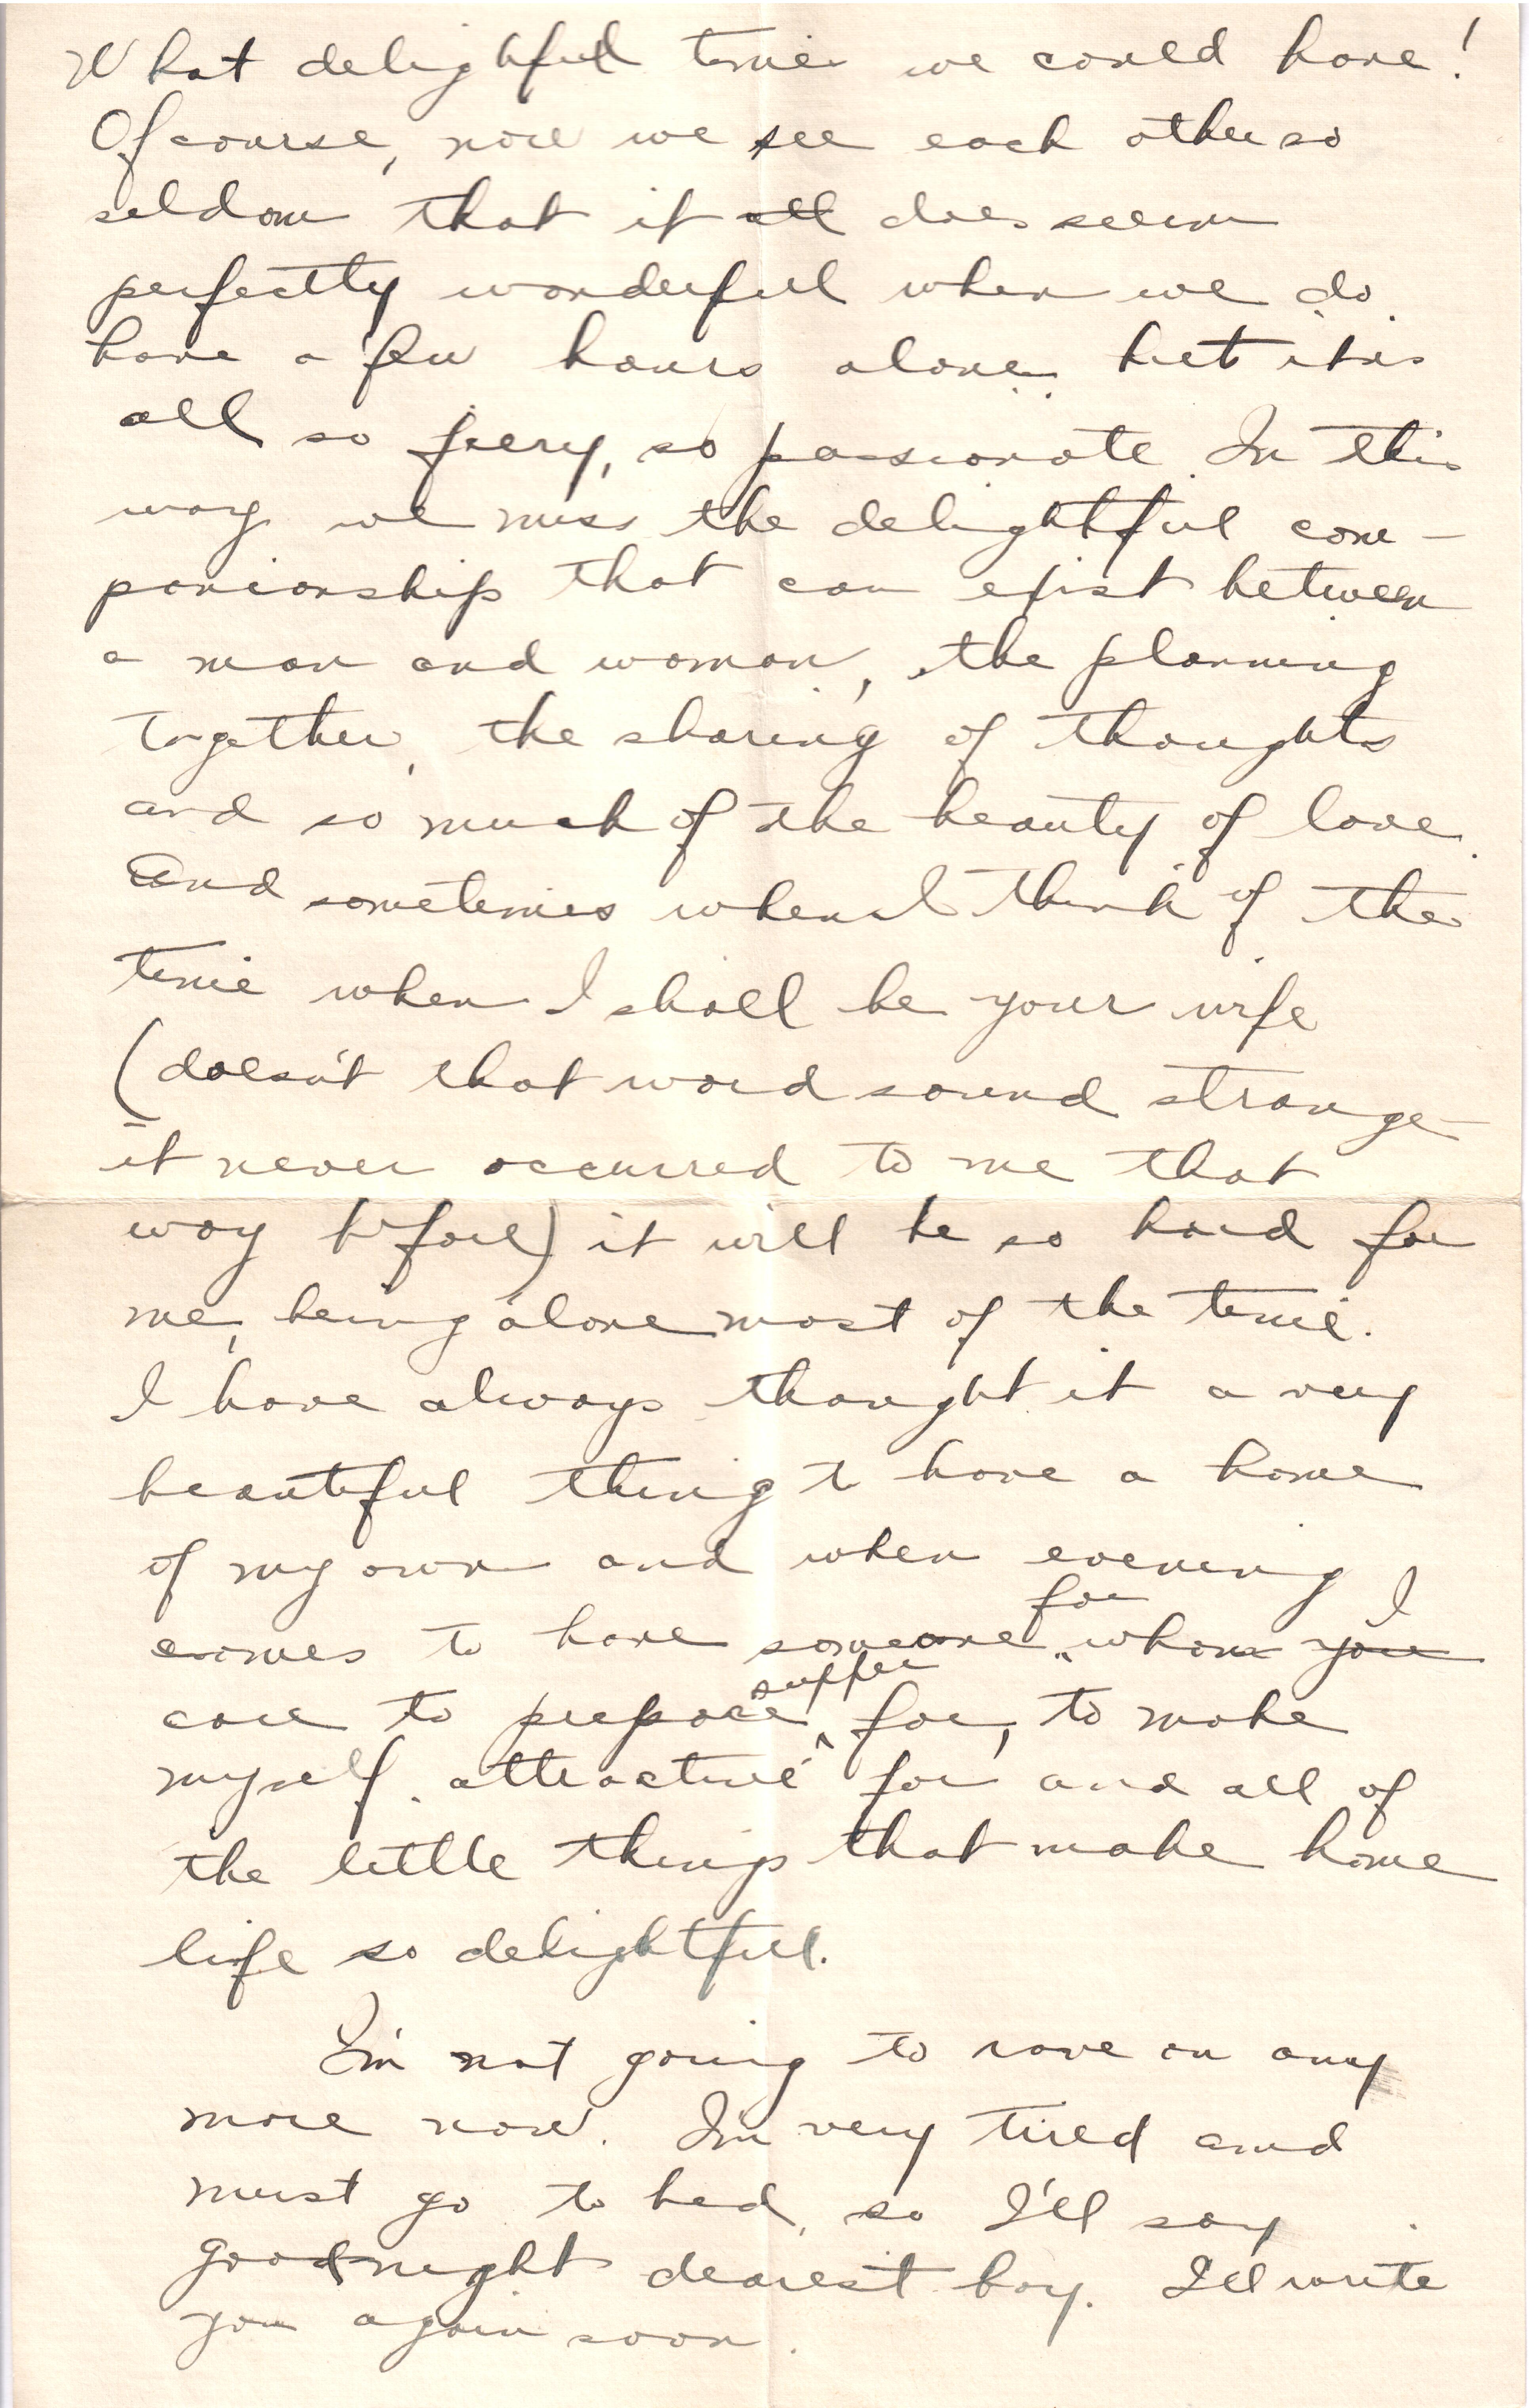 What delightful times we could have!
Of course, now we see each other so
seldom that it all does seem
perfectly wonderful when we do
have a few hours alone but it is
all so fiery, so passionate. In this
way we miss the delightful com-
panionship that can exist between
a man and woman, the planning
together, the sharing of thoughts
and so much of the beauty of love.
And sometimes when I think of the
time when I shall be your wife
(doesn't that word sound strange
it never occurred to me that
way before) it will be so hard for
me, being alone most of the time.
I have always thought it a very
beautiful thing to have a home
of my own and when evening
for I
comes to have someone whom you
supper
care to prepare for, to make
myself attractive for and all of
the little things that make home
life so delightful.
I'm not going to rave on any
more now. I'm very tired and
must go to bed, so I'll say
goodnight dearest boy. I'll write
you again soon.